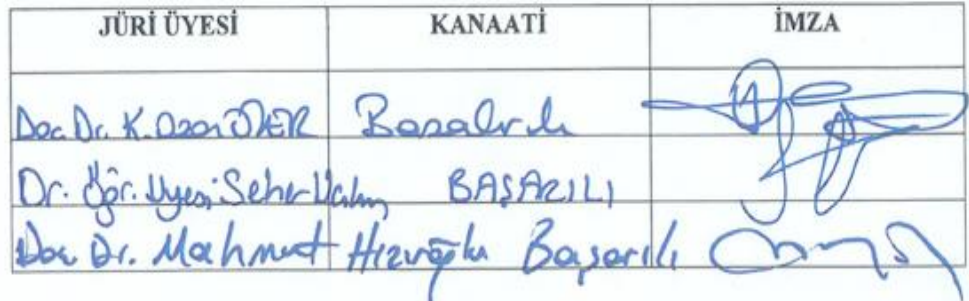 JÜRİ ÜYESİ KANAATİ İMZA
Doç. Dr. K. Ozan ÖKER Başarılı
Dr. Öğr. Üyesi Seher BAŞARILI
Doç. Dr. Mahmut Hızıroğlu Başarılı